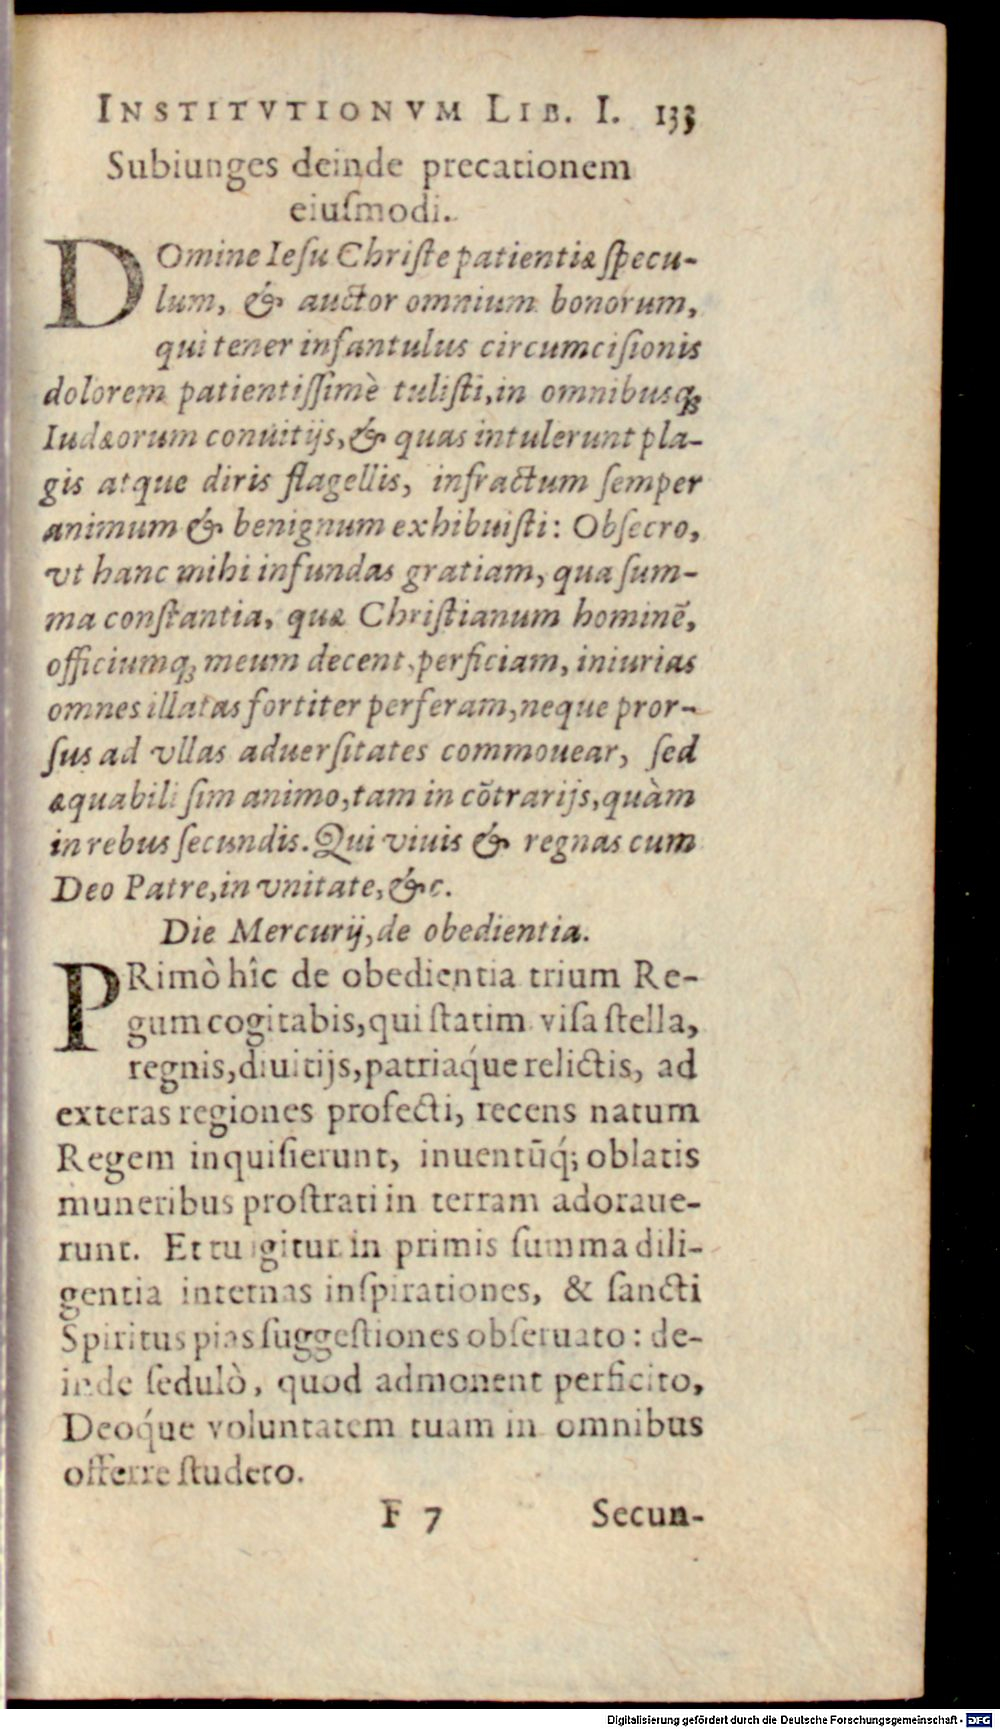 INSTITVTIONVM LIB. I. 133
Subiunges deinde precationem
eiuſmodi.
DOmine Ieſu Chriſte patientiæ ſpecu-
lum, & auctor omnium bonorum,
qui tener infantulus circumciſionis
dolorem patientiſſimè tuliſti, in omnibusq́;
Iudæorum conuitijs, & quas intulerunt pla-
gis atque diris flagellis, infractum ſemper
animum & benignum exhibuiſti: Obſecro,
vt hanc mihi infundas gratiam, qua ſum-
ma conſtantia, quæ Chriſtianum hominẽ,
officiumq; meum decent, perficiam, iniurias
omnes illatas fortiter perferam, neque pror-
ſus ad vllas aduerſitates commouear, ſed
æquabili ſim animo, tam in cõtrarijs, quàm
in rebus ſecundis. Qui viuis & regnas cum
Deo Patre, in vnitate, &c.
Die Mercurij, de obedientia.
PRimò hîc de obedientia trium Re-
gum cogitabis, qui ſtatim viſa ſtella,
regnis, diuitijs, patriáque relictis, ad
exteras regiones profecti, recens natum
Regem inquiſierunt, inuentũq́; oblatis
muneribus proſtrati in terram adoraue-
runt. Et tu igitur in primis ſumma dili-
gentia internas inſpirationes, & ſancti
Spiritus pias ſuggeſtiones obſeruato: de-
inde ſedulò, quod admonent perficito,
Deoq́ue voluntatem tuam in omnibus
offerre ſtudeto.
F 7 Secun-
Digitalisierung gefördert durch die Deutsche Forschungsgemeinschaft - DFG